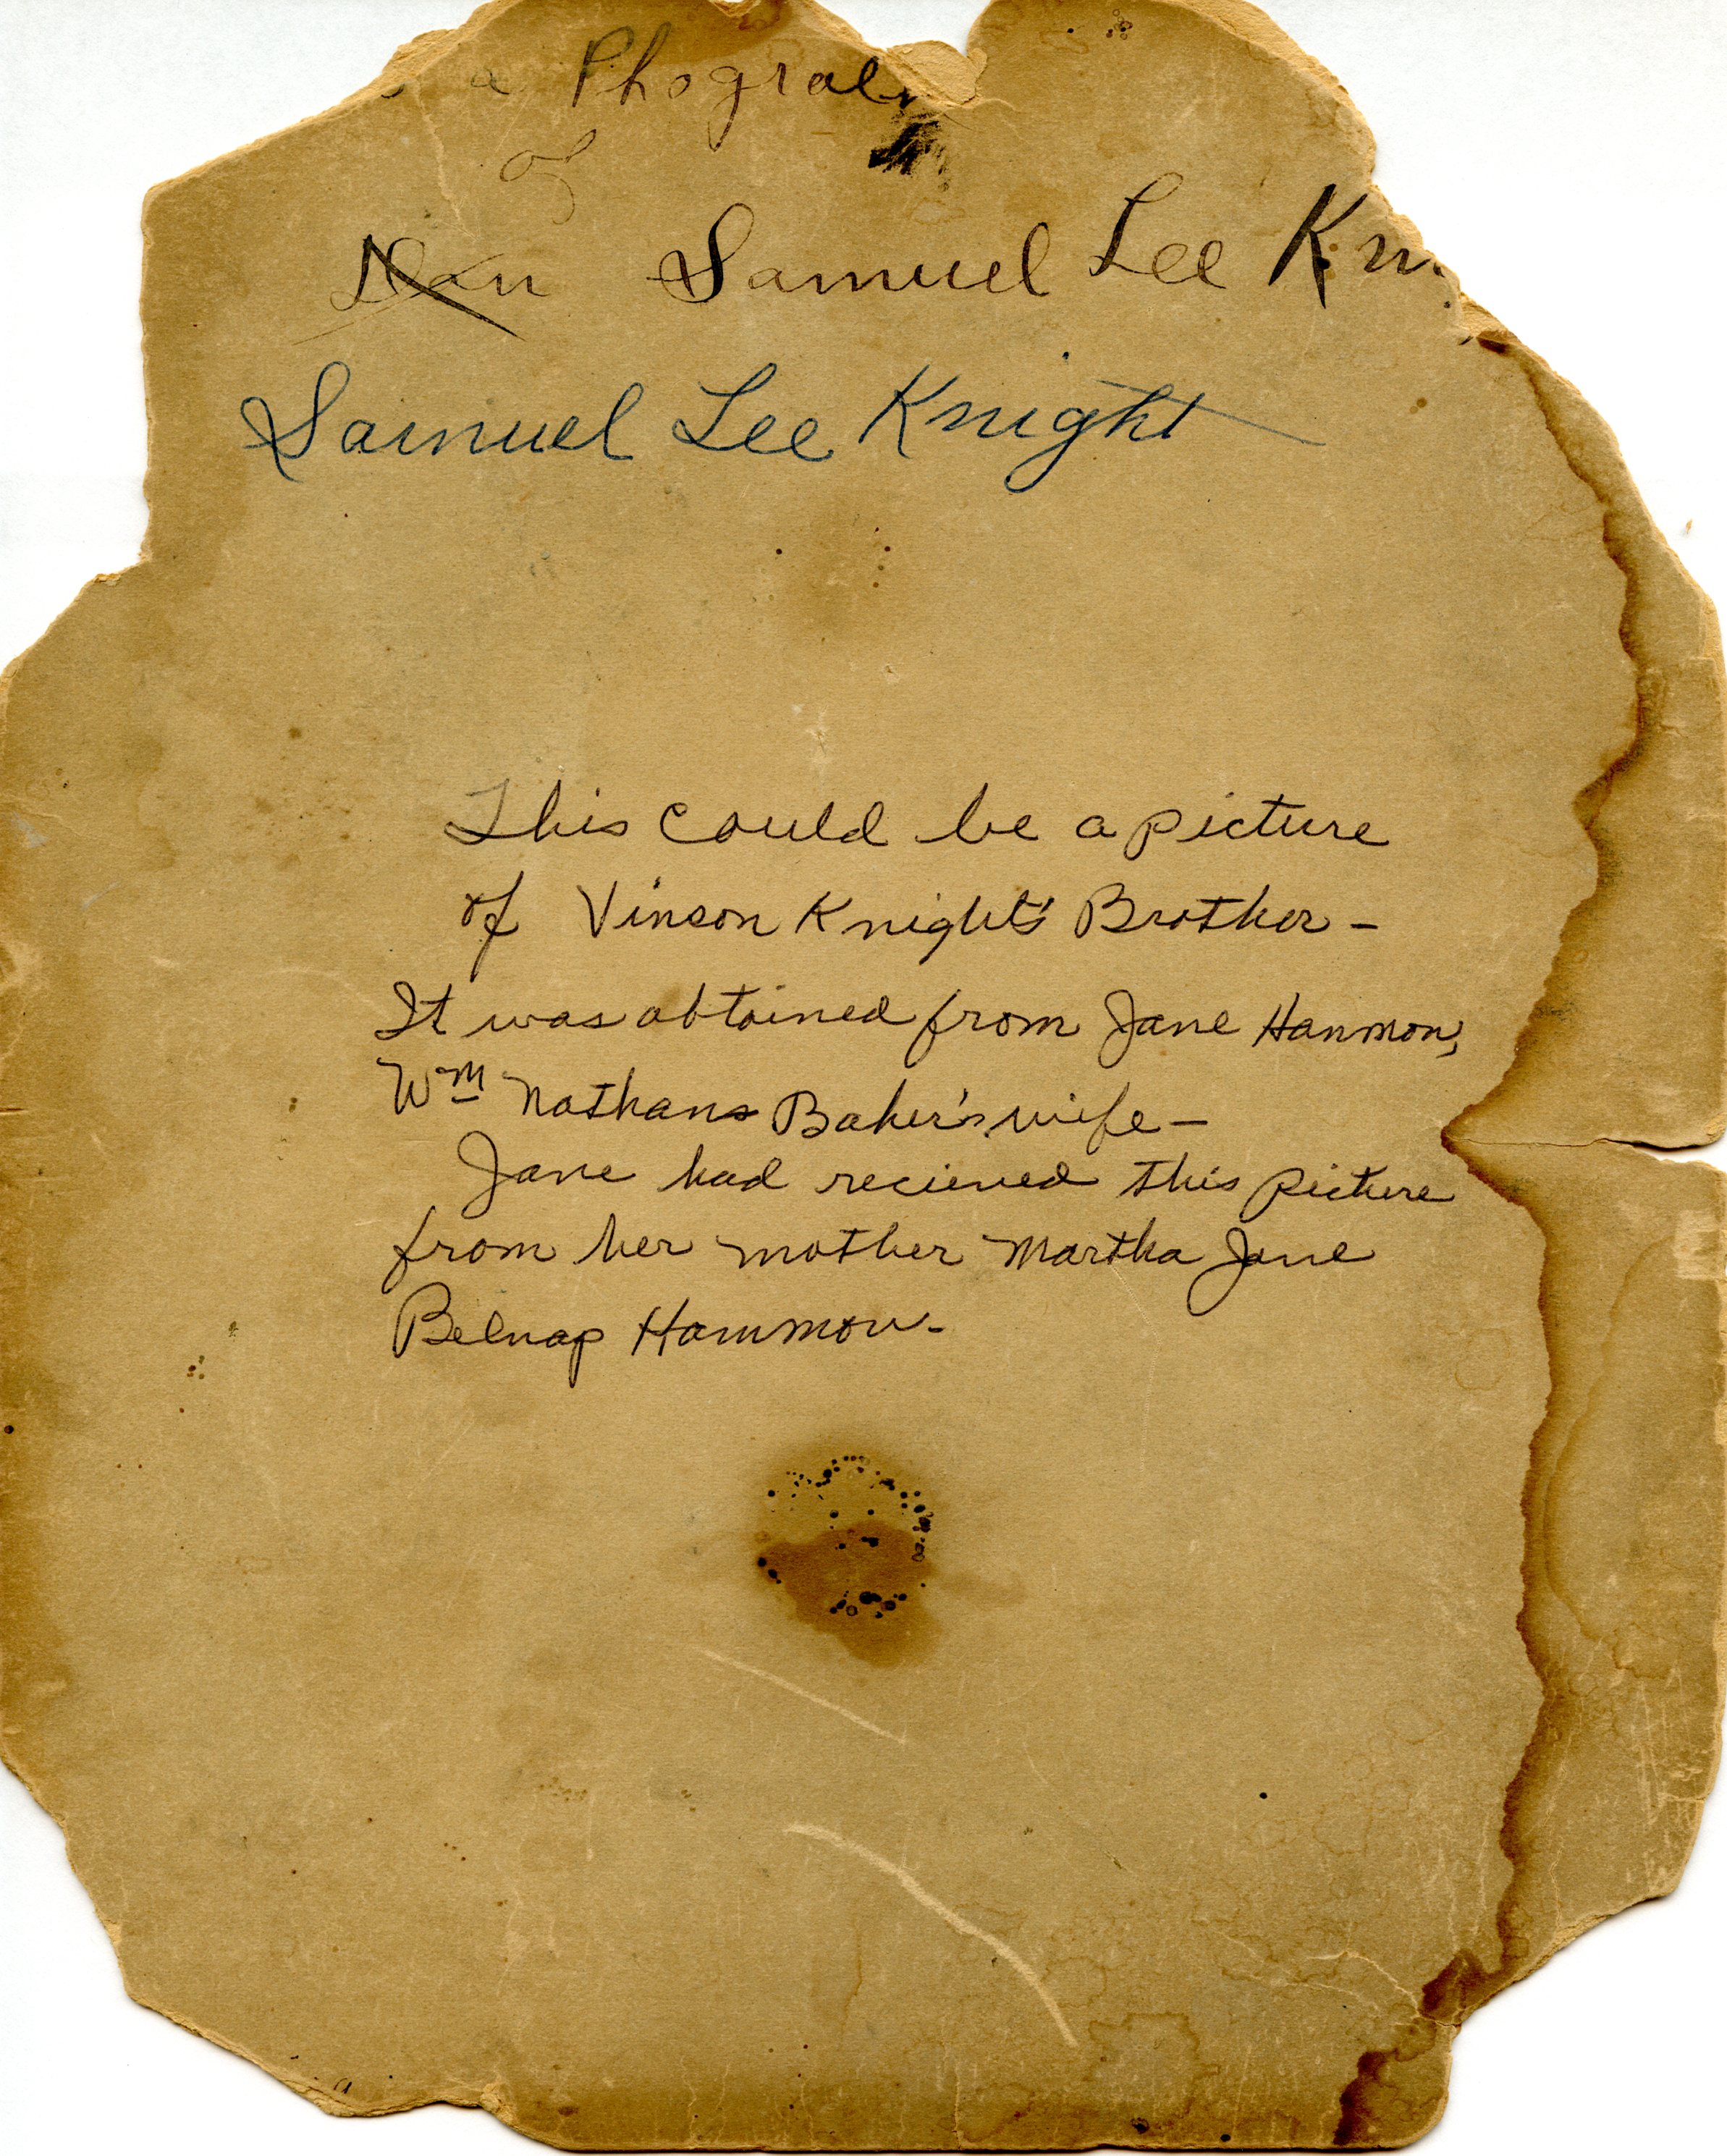 a Phograh
of
Samuel Lee Kn
Samuel Lee Knight
This could be a picture
of Vinson Knight's Brother -
It was obtained from Jane Hanmon,
Wm Nathans Baker's wife -
Jane had recieved this picture
from her mother Martha Jane
Belnap Hammon -